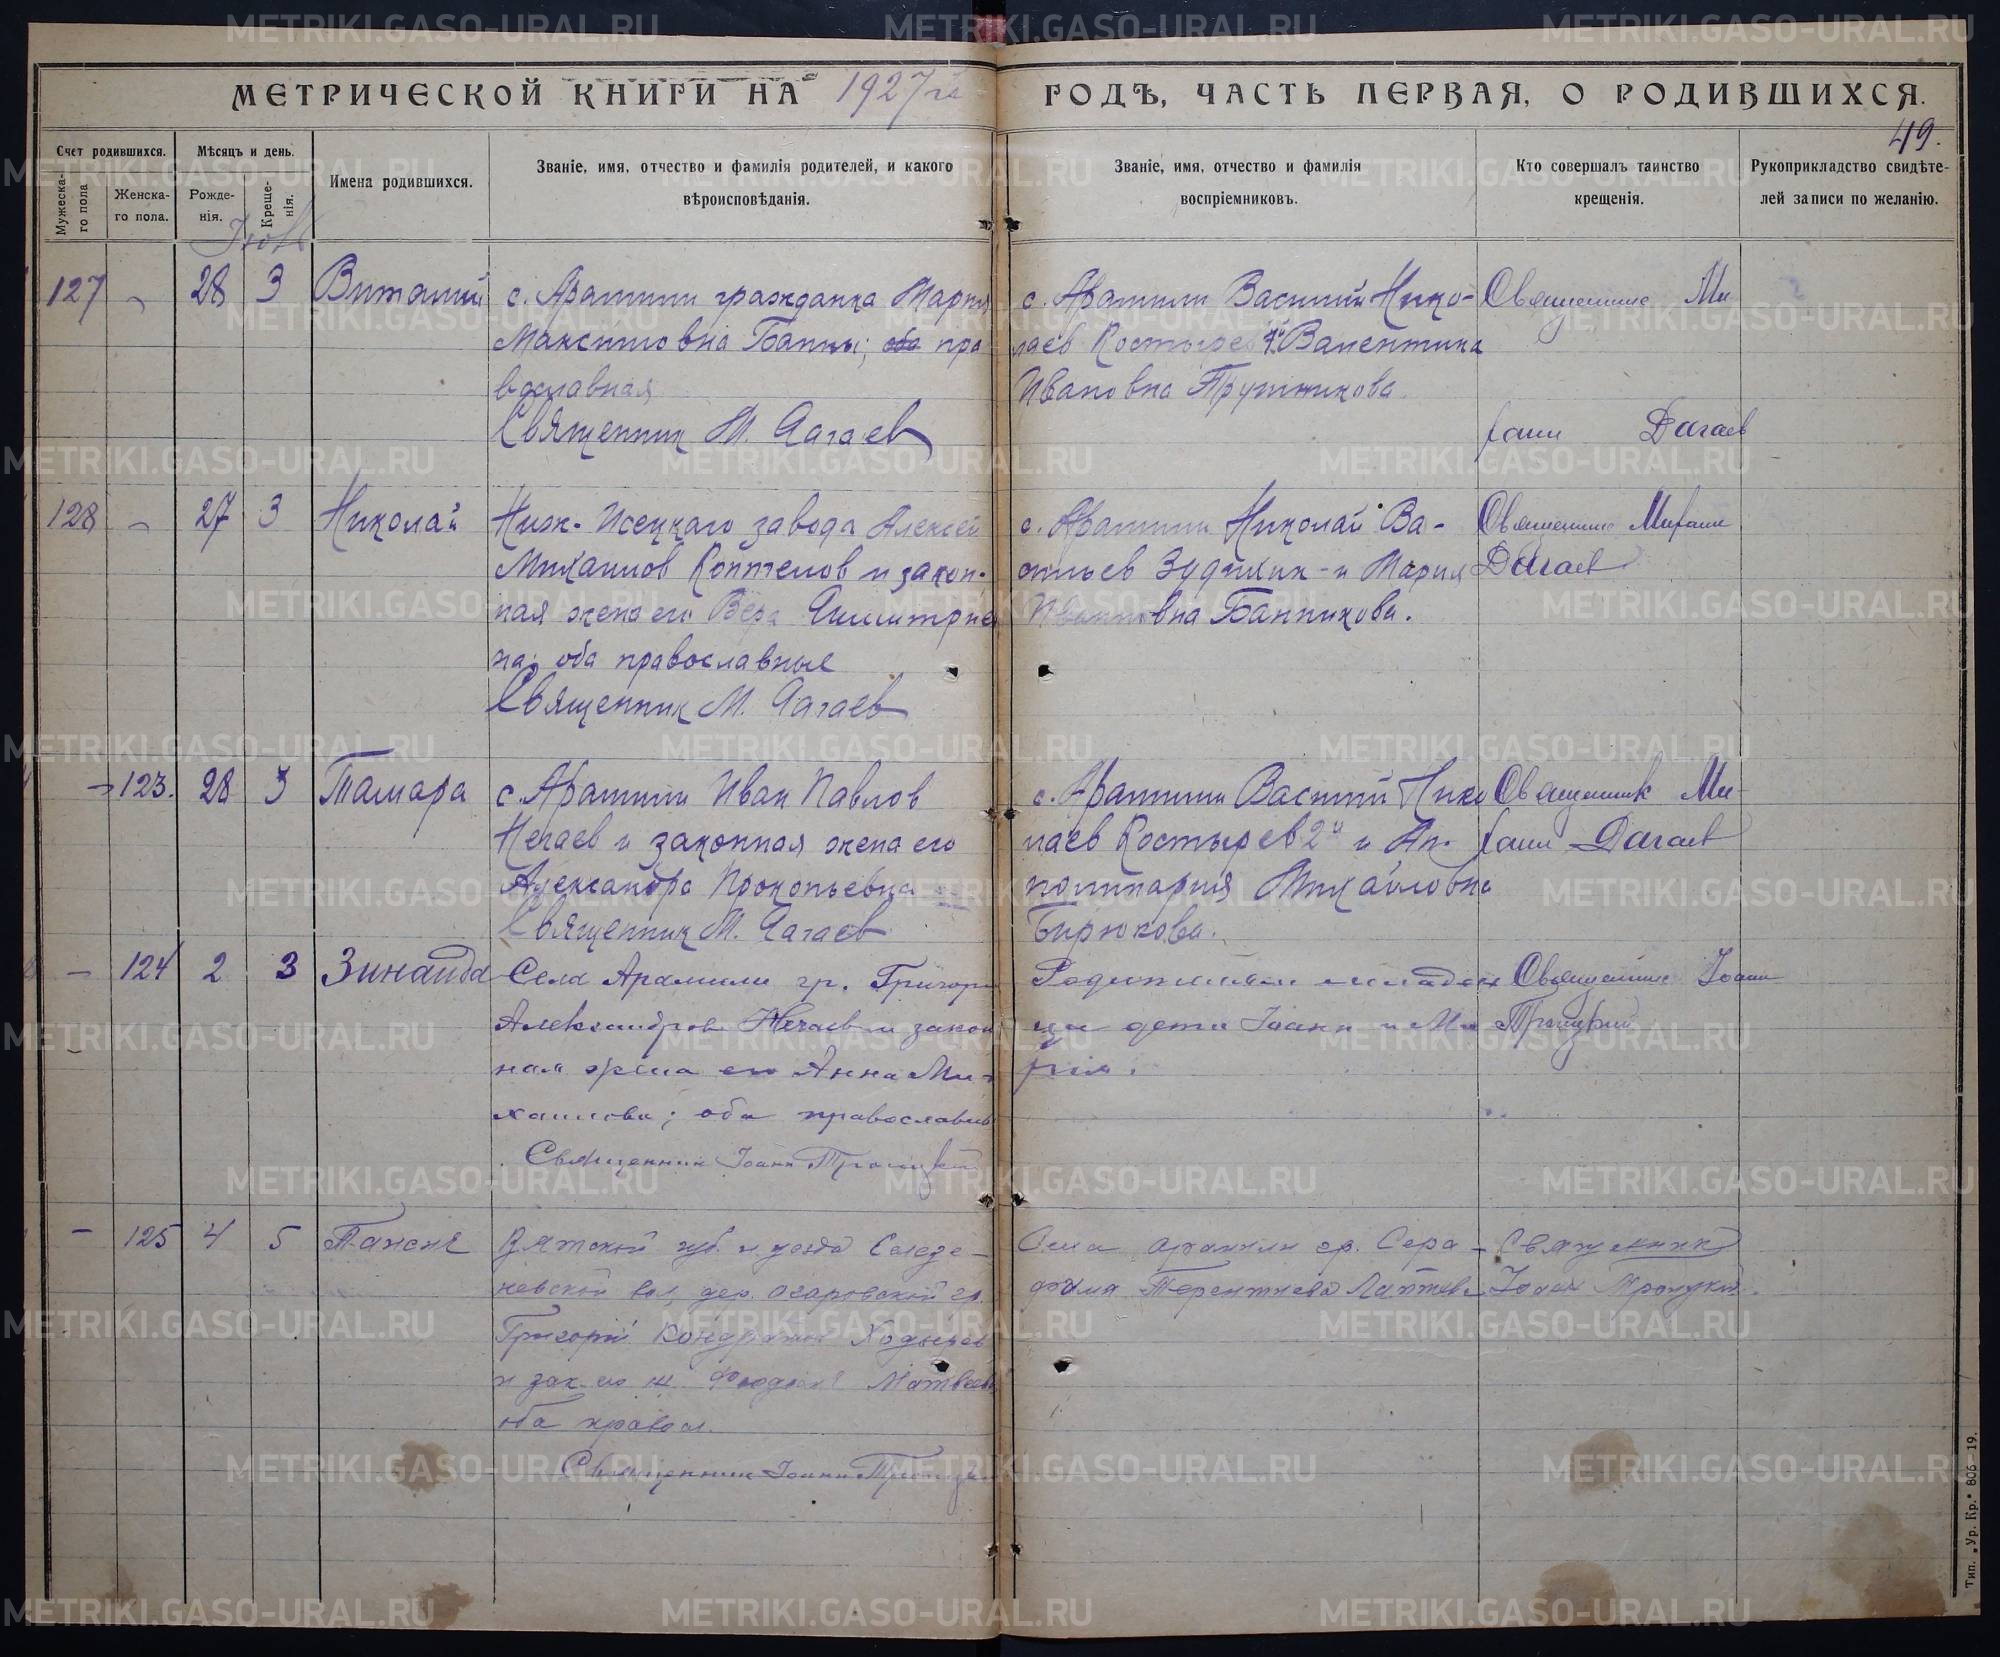 МЕТРИЧЕСКОЙ КНИГИ НА 1927 ГОДѢ, ЧАСТЬ ПЕРВАЯ, О РОДИВШИХСЯ.
49.
Счет родившихся.
Мужеска-
го пола
Женска-
го пола.
Мѣсяцъ и день.
Рожде-
нія.
Креще-
нія.
Имена родившихся.
Званіе, имя, отчество и фамилія родителей, и какого
вѣроисповѣданія.
Званіе, имя, отчество и фамилія
воспріемниковъ.
Кто совершалъ таинство
крещенія.
Рукоприкладство свидѣте-
лей записи по желанію.
127 28 3 Виталий
с. Арамили гражданка Мария
Максимовна православная
Священник М. Дагаев
с. Арамили Василий Нико-
лаев Костырев и Валентина
Ивановна
Священник Ми
хаил Дагаев
128 - 27 3 Николай
Ниж-Исецкаго завода Алексей
Михаилов Коптелов и закон-
ная жена его Вера
на; оба православные
Священник М. Дагаев
с. Арамили Николай Ва-
сильев и Мария
Ивановна Банникова.
Священник Михаил
Дагаев
- 123. 28 3 Тамара
с. Арамили Иван Павлов
Нечаев и законная жена его
Александра Прокопьевна
Священник М. Дагаев
с. Арамили Василий Нико
лаев Костырев 2й и Ап-
полинария Михайловна
Бирюкова.
Священник Ми-
хаил Дагаев
- 124 2 3 Зинаида
Села Арамили гр. Григорий
Александров Нечаев и закон
ная жена его Анна Ми-
хаилова; оба православн
Священник Іоанн Троицкий
дети Іоанн и Ма
рия.
Священник Іоанн
Троицкий
- 125 4 5 Таисия
Вятской губ. и уезда
вол. дер. гр.
Григорий Ходырев
и зак. его ж. Матвеев
оба правосл.
Священник Іоанн
Села Арамили гр. Сера-
фима Терентиева Лаптева
Священник
Іоанн Троицкий.
Тип. „Ур. Кр." 806—19.
METRIKI.GASO-URAL.RU